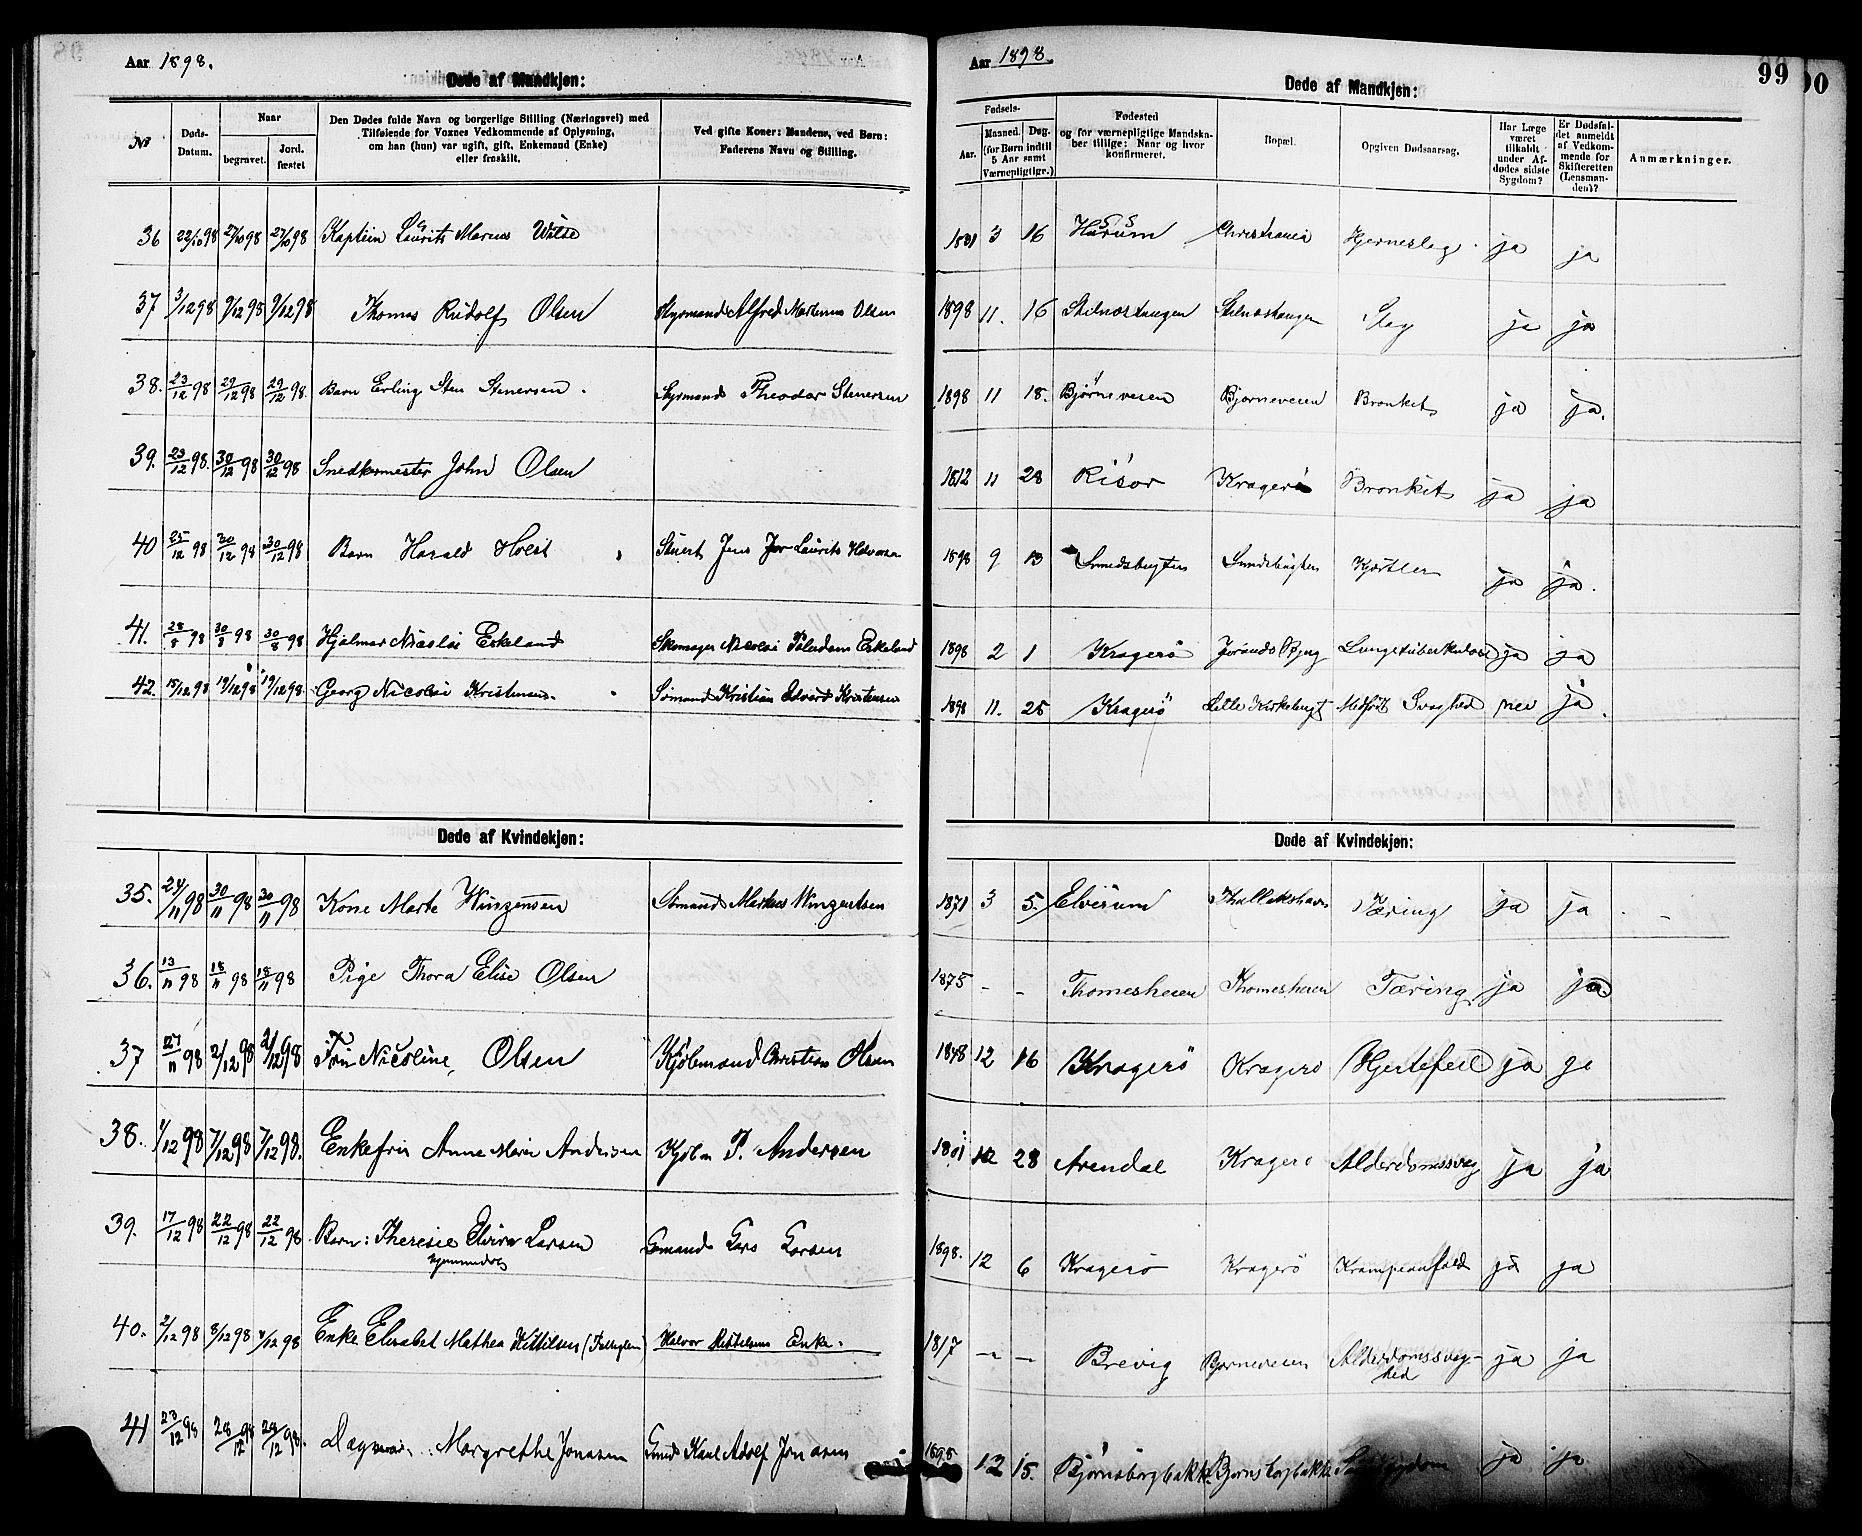 Aar 1898.
Døde af Mandkjøn:
№
Døds-Datum.
Naar
begravet.
Jord. fæstet
Den Dødes fulde Navn og borgerlige Stilling (Næringsvei) med
Tilføiende for Voxnes Vedkommende af Oplysning,
om han (hun) var ugift, gift, Enkemand (Enke)
eller fraskilt.
Ved gifte Koner: Mandens, ved Børn:
Faderens Navn og Stilling.
36 22/10 98 27/10 98 27/10 98 Kaptein Laurits Marcus Wilse
37 3/12 98 9/12 98 9/12 98 Thomas Rudolf Olsen Styrmand Alfred Martinus Olsen
38. 23/12 98 29/12 98 29/12 98. Barn Erling Sten Stenersen. Styrmand Theodor Stenersen
39. 23/12 98. 30/12 98 30/12 98 Snedkermester John Olsen
40 25/12 98 30/12 98 30/12 98 Barn Harald Holst Jens Laurits
41. 28/8 98 30/8 98 30/8 98 Hjalmar Nicolai Eskeland Skomager Nicolai Eskeland
42. 15/12 98 19/12 98 19/12 98 Georg Nicolai Kristensen. Sømand Kristian Edvard Kristensen
Døde af Kvindekjøn:
35. 24/11 98 30/11 98 30/11 98 Kone Marte Sømand
36. 13/11 98 18/11 98 18/11 98 Pige Thora Elise Olsen
37 27/11 98 2/12 98 2/12 98 Fru Nicoline, Olsen Kjøbmand Christian Olsen
38. 1/12 98 7/12 98 7/12 98. Enkefru Anne Marie Andersen Kjøbm P. Andersen
39. 17/12 98 22/12 98 22/12 98 Barn: Theresie Elvira Larsen Sømand Lars Larsen
hjemmedøbt
40. 2/12 98 8/12 98 8/12 98 Enke Elisabet Mathea Kittilsen Halvor Kittelsens Enke.
41 23/12 98 28/12 98 28/12 98. Dagmar Margrethe Jonasen Karl Adolf Jonasen
Aar 1898.
Døde af Mandkjøn:
99
Fødsels-
Aar.
Maaned. Dag.
(for Børn indtil
5 Aar samt
Værnepligtige.)
Fødested
og for værnepligtige Mandska-
ber tillige: Naar og hvor
konfirmeret.
Bopæl.
Opgiven Dødsaarsag.
Har Læge
været
tilkaldt
under Af-
dødes sidste
Sygdom?
Er Dødsfal-
det anmeldt
af Vedkom-
mende for
Skifteretten
(Lensman-
den)?
Anmærkninger.
1831 3 16 Hurum Christiania Hjerneslag. ja ja
1898 11. 16 Stilnæstangen Stilnæstangen Slag ja ja
1898 11 18. Bjørneveien Bjørneveien Bronkit ja ja.
1812 11 28 Risør Kragerø Bronkit ja ja
1898 9 13 Smedsbugten Smedsbugten Kjertler ja ja.
1898 2 1 Kragerø Bjerg Lungetuberkulose ja ja
1898 11. 25 Kragerø Lille Kirkebugt Medfødt Svaghed nei ja.
Døde af Kvindekjøn:
1871 3 5. Elverum Tæring ja ja
1875 - - Thomesheien Thomesheien Tæring ja ja.
1848 12 16 Kragerø Kragerø Hjertefeil ja ja
1801 12 28 Arendal Kragerø Alderdomssvag ja ja
1898. 12 6 Kragerø Kragerø Krampeanfald ja ja
1817 - - Brevig Bjørneveien Alderdomssvag-
hed ja ja
1898 12 15. Bjørnsborgbakk. Bjørnsborgbakk. ja ja